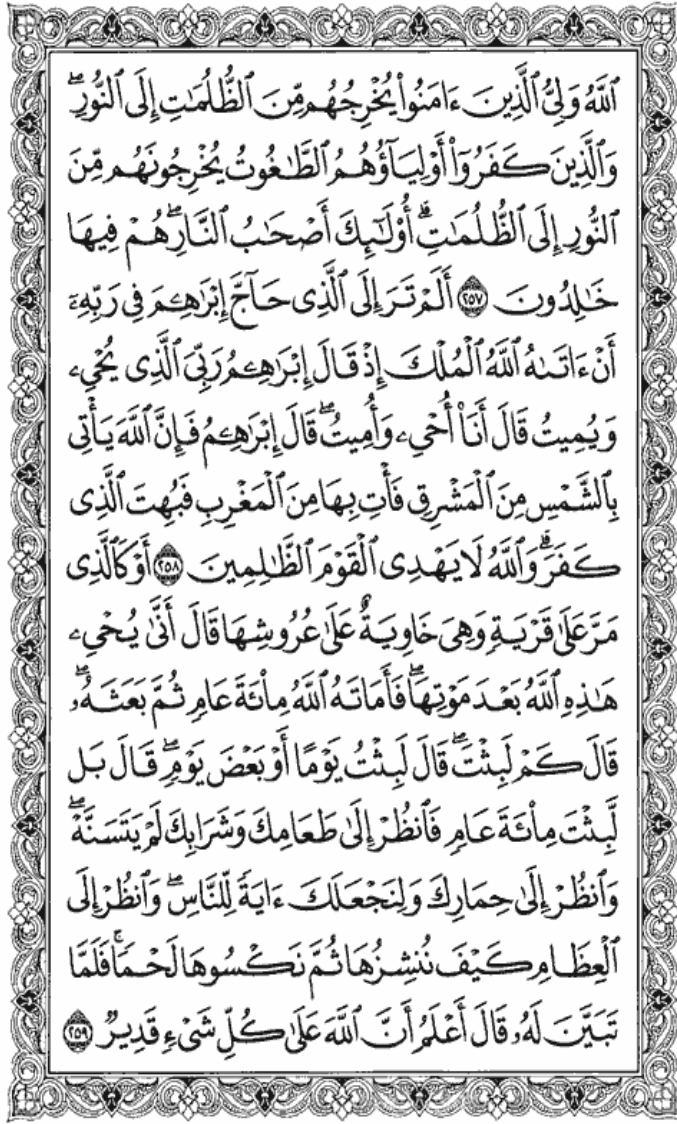 ٱللَّهُ وَلِىُّ ٱلَّذِينَ ءَامَنُوا۟ يُخْرِجُهُم مِّنَ ٱلظُّلُمَٰتِ إِلَى ٱلنُّورِۖ
وَٱلَّذِينَ كَفَرُوٓا۟ أَوْلِيَآؤُهُمُ ٱلطَّٰغُوتُ يُخْرِجُونَهُم مِّنَ
ٱلنُّورِ إِلَى ٱلظُّلُمَٰتِۗ أُو۟لَٰٓئِكَ أَصْحَٰبُ ٱلنَّارِۖ هُمْ فِيهَا
خَٰلِدُونَ ٢٥٧ أَلَمْ تَرَ إِلَى ٱلَّذِى حَآجَّ إِبْرَٰهِـۧمَ فِى رَبِّهِۦٓ
أَنْ ءَاتَىٰهُ ٱللَّهُ ٱلْمُلْكَ إِذْ قَالَ إِبْرَٰهِـۧمُ رَبِّىَ ٱلَّذِى يُحْىِۦ
وَيُمِيتُ قَالَ أَنَا۠ أُحْىِۦ وَأُمِيتُۖ قَالَ إِبْرَٰهِـۧمُ فَإِنَّ ٱللَّهَ يَأْتِى
بِٱلشَّمْسِ مِنَ ٱلْمَشْرِقِ فَأْتِ بِهَا مِنَ ٱلْمَغْرِبِ فَبُهِتَ ٱلَّذِى
كَفَرَۗ وَٱللَّهُ لَا يَهْدِى ٱلْقَوْمَ ٱلظَّٰلِمِينَ ٢٥٨ أَوْ كَٱلَّذِى
مَرَّ عَلَىٰ قَرْيَةٍ وَهِىَ خَاوِيَةٌ عَلَىٰ عُرُوشِهَا قَالَ أَنَّىٰ يُحْىِۦ
هَٰذِهِ ٱللَّهُ بَعْدَ مَوْتِهَاۖ فَأَمَاتَهُ ٱللَّهُ مِا۟ئَةَ عَامٍ ثُمَّ بَعَثَهُۥۖ
قَالَ كَمْ لَبِثْتَۖ قَالَ لَبِثْتُ يَوْمًا أَوْ بَعْضَ يَوْمٍۖ قَالَ بَل
لَّبِثْتَ مِا۟ئَةَ عَامٍ فَٱنظُرْ إِلَىٰ طَعَامِكَ وَشَرَابِكَ لَمْ يَتَسَنَّهْۖ
وَٱنظُرْ إِلَىٰ حِمَارِكَ وَلِنَجْعَلَكَ ءَايَةً لِّلنَّاسِۖ وَٱنظُرْ إِلَى
ٱلْعِظَامِ كَيْفَ نُنشِزُهَا ثُمَّ نَكْسُوهَا لَحْمًاۚ فَلَمَّا
تَبَيَّنَ لَهُۥ قَالَ أَعْلَمُ أَنَّ ٱللَّهَ عَلَىٰ كُلِّ شَىْءٍ قَدِيرٌ ٢٥٩